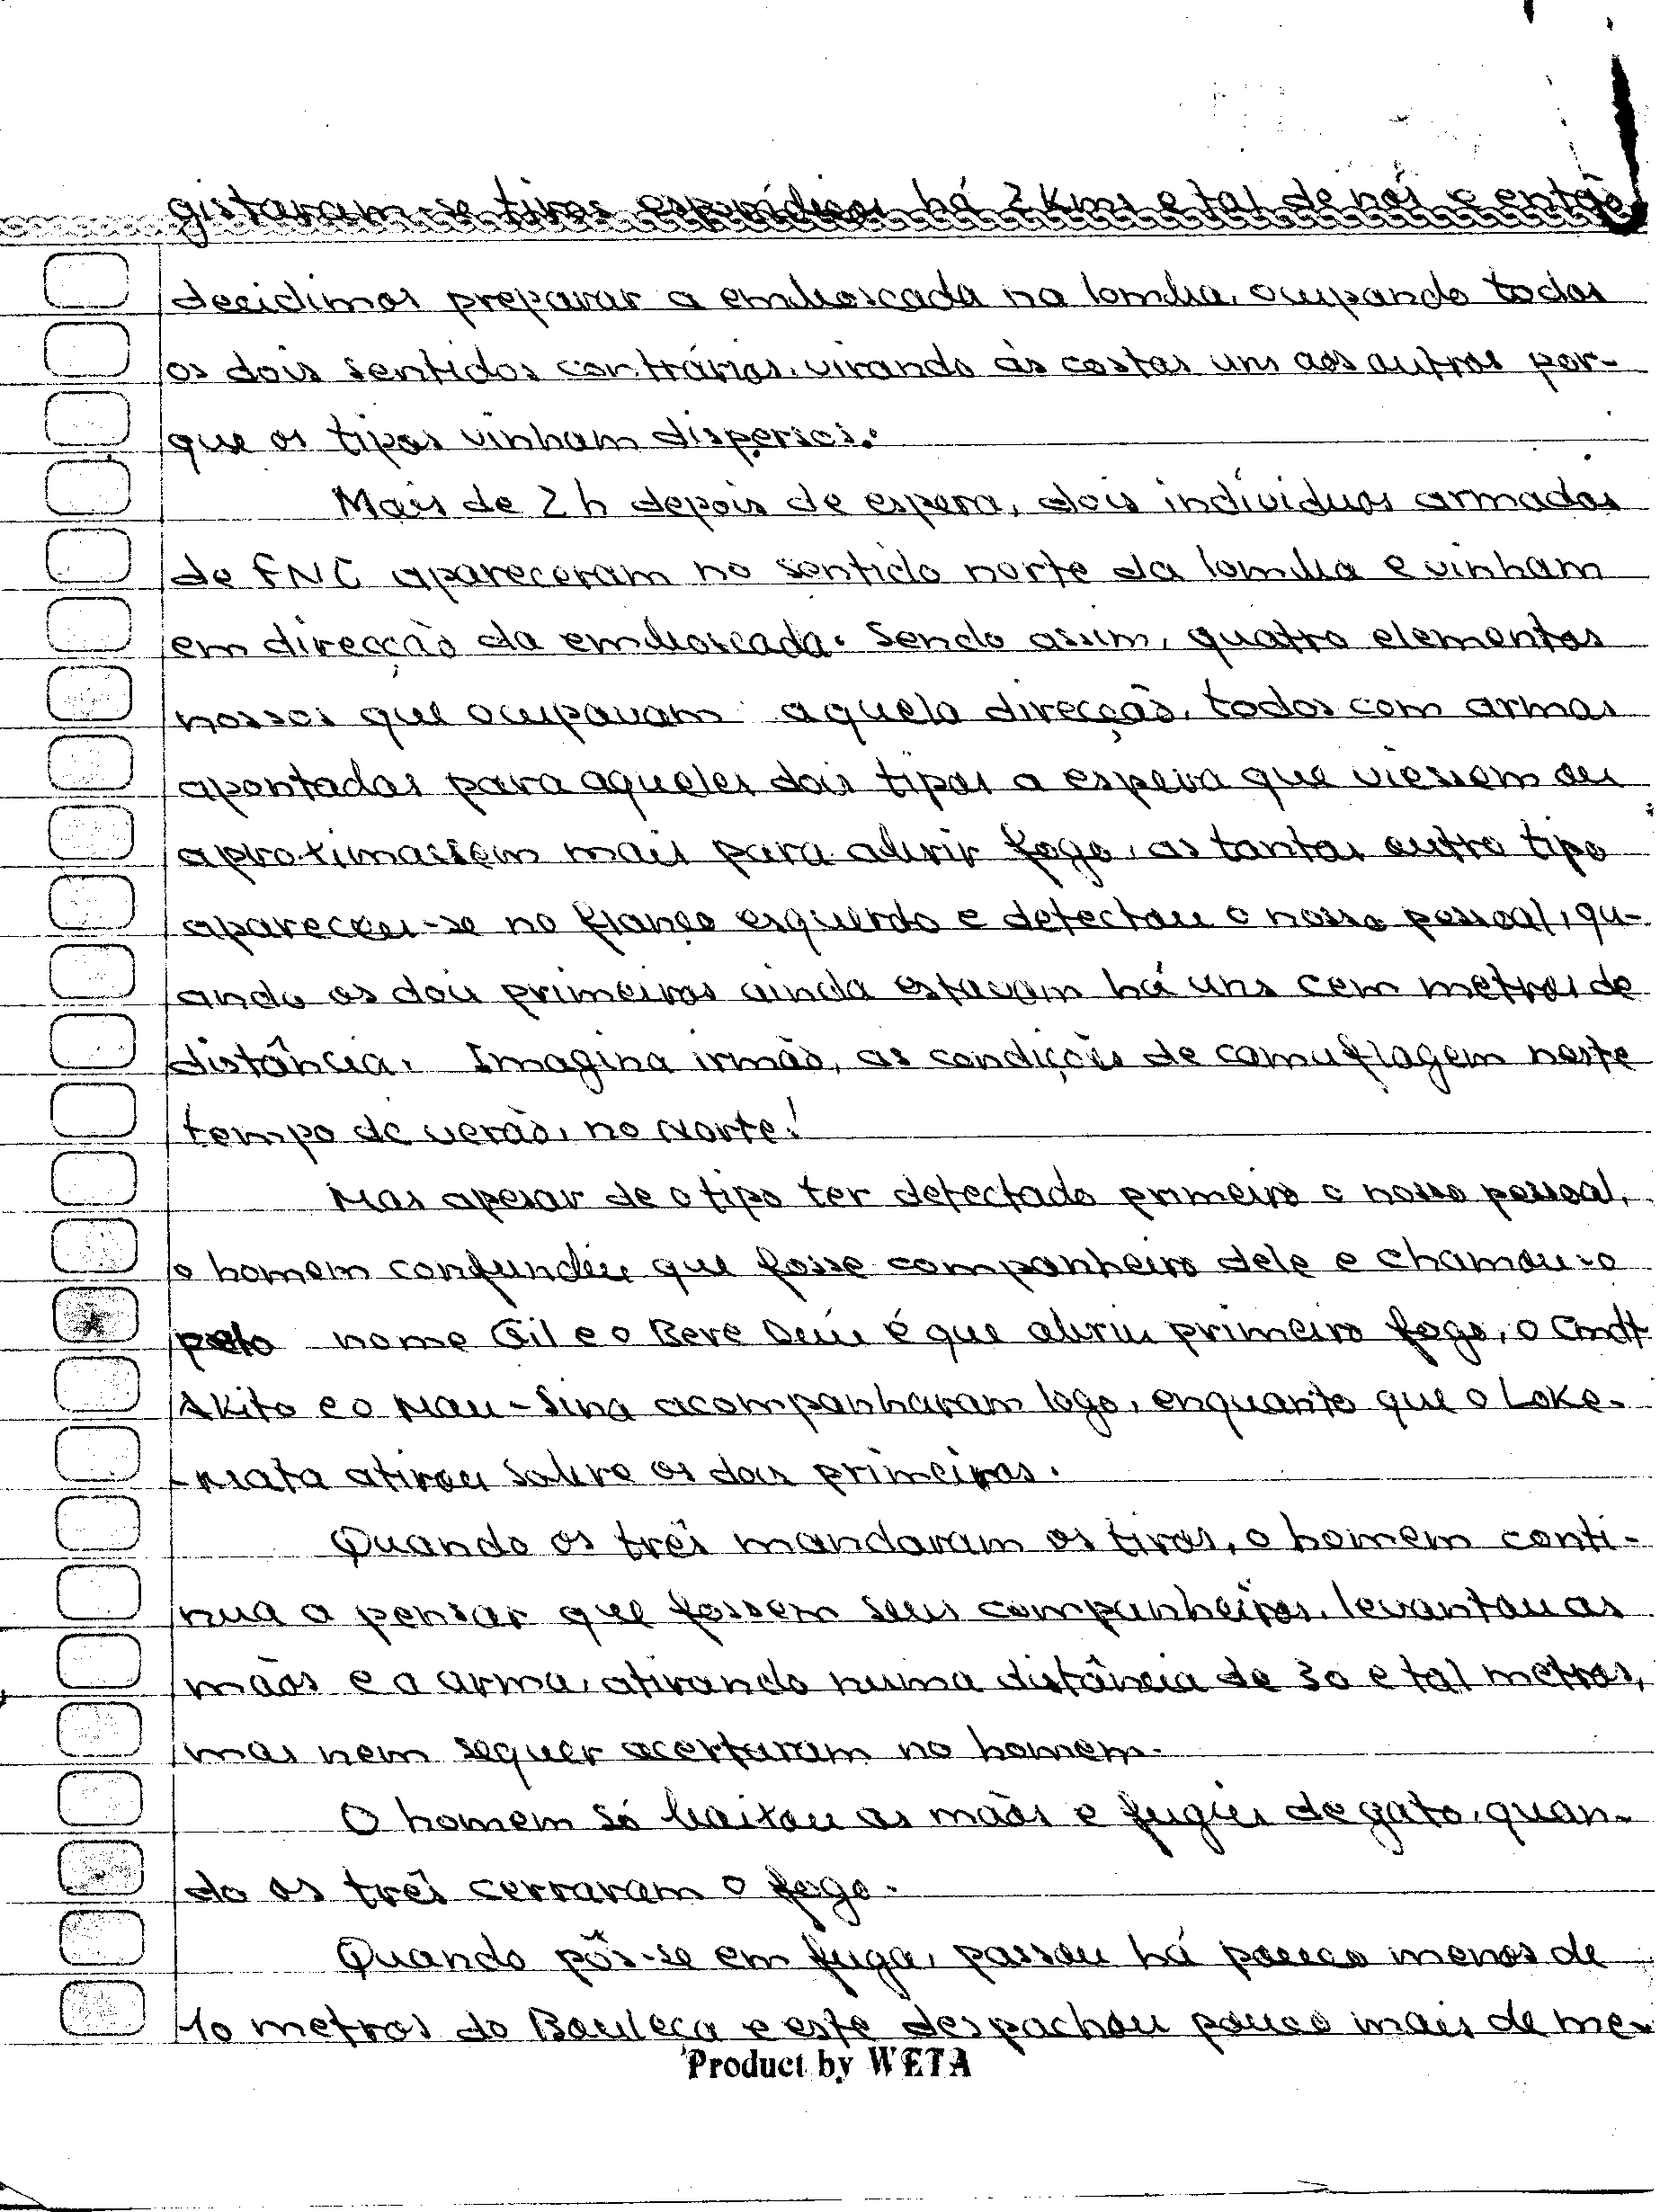 gistaram-se tiros esporádicos há 2 Kms e tal de nós e então
decidimos preparar a emboscada na lomba, ocupando todos
os dois sentidos contrários, virando às costas uns aos outros por-
que os tipos vinham dispersos.
Mais de 2 h depois de espera, dois indivíduos armados
de FNC apareceram no sentido norte da lomba e vinham
em direcção da emboscada. Sendo assim, quatro elementos
nossos que ocupavam aquela direcção, todos com armas
apontadas para aqueles dois tipos a espera que viessem ou
aproximassem mais para abrir fogo, as tantas outro tipo
apareceu-se no flanco esquerdo e detectou o nosso pessoal, qu-
ando os dois primeiros ainda estavam há uns cem metros de
distância. Imagina irmão, as condições de camuflagem neste
tempo de verão, no Norte!
Mas apesar de o tipo ter detectado primeiro o nosso pessoal,
o homem confundiu que fosse companheiro dele e chamou-o
pelo nome Gil e o Bere Seúu é que abriu primeiro fogo, o Cmdt
Akito e o Mau-Sina acompanharam logo, enquanto que o Loke-
-Mata atirou sobre os dois primeiros.
Quando os três mandaram os tiros, o homem conti-
nua a pensar que fossem seus companheiros, levantou as
mãos e a arma, atirando numa distância de 30 e tal metros,
mas nem sequer acertaram no homem.
O homem só baixou as mãos e fugiu de gato, quan-
do os três cerraram o fogo.
Quando pôs-se em fuga, passou há pouco menos de
10 metros do Bouleca e este despachou pouco mais de me-
Product by WETA